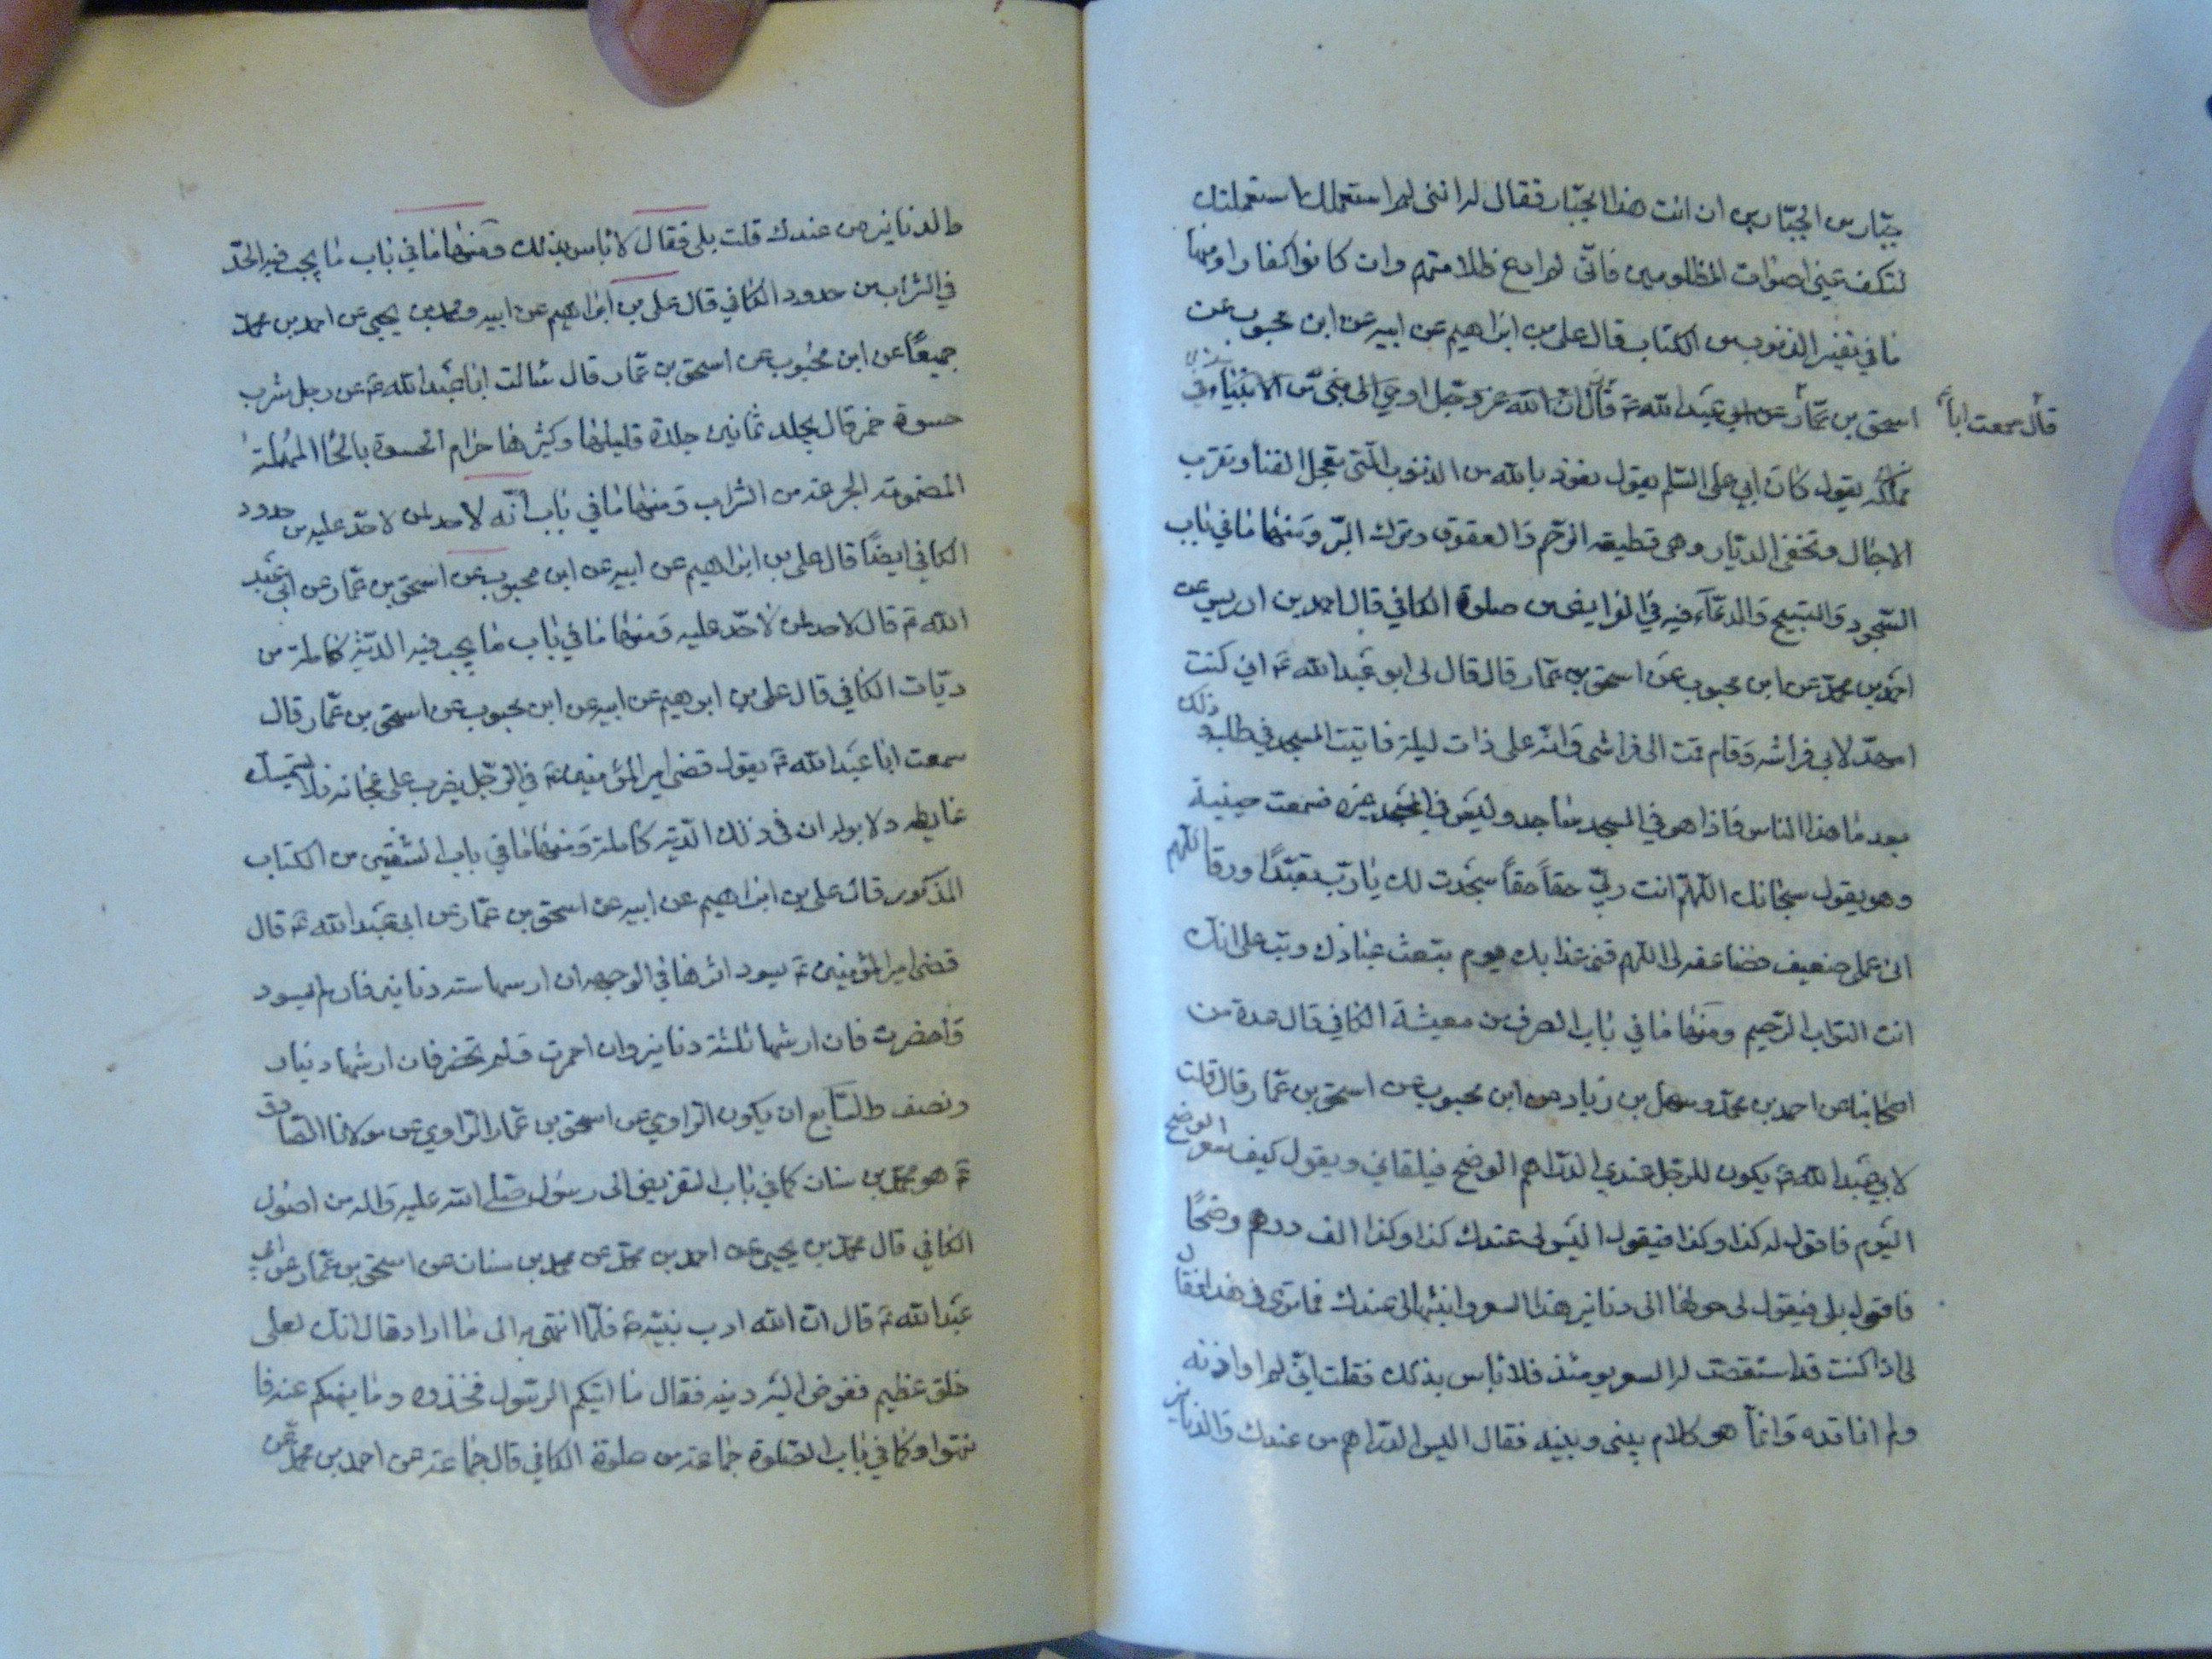 جبّار من الجبّارين ان ائت هذا الجبّار فقال له انني لم استعملك استعملتك
لتكف عني اصوات المظلومين فاني لم ادع ظلامتهم وان كانوا كفارا ومنها
ما في تفسير الذنوب من الكتاب قال علي بن ابراهيم عن ابيه عن ابن محبوب عن
اسحق بن عمّار عن ابي عبد الله ع قال ان الله عز وجل اوحى الى نبي من الانبياء في
قال سمعت ابا
مملكة يقول كان ابي عليه السّلم يقول نعوذ بالله من الذنوب التي تعجل الفنا وتقرب
الاجال وتخلى الديار وهي قطيعة الرّحم والعقوق وترك البرّ ومنها ما في باب
السّجود والتسبيح والدعآء فيه في الفرايض من صلوة الكافي قال احمد بن ادريس عن
احمد بن محمّد عن ابن محبوب عن اسحق بن عمّار قال قال لي ابو عبد الله ع اني كنت
امهّد لابي فراشه وقام نمت الى فراشي وانّه على ذات ليلة فاتيت المسجد في طلبه وذلك
بعد ما هذا الناس فاذا هو في المسجد ساجد وليس في المسجد غيره فسمعت حنينه
وهو يقول سبحانك اللّهمّ انت ربّي حقاً حقاً سجدت لك يا ربّ تعبّدًا ورقا اللّهم
ان عملي ضعيف فضاعفه لي اللهم قني عذابك يوم تبعث عبادك وتب علي انك
انت التواب الرّحيم ومنها ما في باب الصرف من معيشة الكافي قال عدة من
اصحابنا عن احمد بن محمّد وسهل بن زياد عن ابن محبوب عن اسحق بن عمّار قال قلت
لابي عبد الله ع يكون للرّجل عندي الدّراهم الوضح فيلقاني ويقول كيف سعر الوضح
اليوم فاقول له كذا وكذا فيقول اليس لي عندك كذا وكذا الف درهم وضحًا
فاقول بلى فيقول لي حولها الى دنانير بهذا السعر واثبتها لي عندك فما ترى في هذا فقال
لي اذا كنت قد استقصيت له السعر يومئذ فلا باس بذلك فقلت انّي لم اوازنه
ولم اناقده وانمّا هو كلام بيني وبينه فقال اليس الدّراهم من عندك والدنانير
والدنانير من عندك قلت بلى فقال لا باس بذلك ومنها ما في باب ما يجب فيه الحدّ
في الشراب من حدود الكافي قال علي بن ابراهيم عن ابيه ومحمد بن يحيى عن احمد بن محمّد
جميعًا عن ابن محبوب عن اسحق بن عمّار قال سالت ابا عبد الله ع عن رجل شرب
حسوة خمر قال يجلد ثمانين جلدة قليلها وكثيرها حرام الحسوة بالحا المهملة
المضمومة الجرعة من الشراب ومنها ما في باب انّه لا حد لمن لا حدّ عليه من حدود
الكافي ايضًا قال علي بن ابراهيم عن ابيه عن ابن محبوب عن اسحق بن عمّار عن ابي عبد
الله ع قال لا حد لمن لا حدّ عليه ومنها ما في باب ما يجب فيه الدّية كاملة من
ديّات الكافي قال علي بن ابرهيم عن ابيه عن ابن محبوب عن اسحق بن عمّار قال
سمعت ابا عبد الله ع يقول قضى امير المؤمنين ع في الرّجل يضرب على عجانه فلا يستمسك
غايطه ولا بوله ان في ذلك الدّية كاملة ومنها ما في باب الشفتين من الكتاب
المذكور قال علي بن ابراهيم عن ابيه عن اسحق بن عمّار عن ابي عبد الله ع قال
قضى امير المؤمنين ع يسود اثرها في الوجه ان ارشها ستة دنانير فان لم يسود
واخضرت فان ارشها ثلثة دنانير وان احمرت ولم تخضر فان ارشها دينار
ونصف والسّابع ان يكون الرّاوي عن اسحق بن عمّار الرّاوي عن مولانا الصّادق
ع هو محمّد بن سنان كما في باب التفويض الى رسول صلى الله عليه واله من اصول
الكافي قال محمّد بن يحيى عن احمد بن محمّد عن محمد بن سنان عن اسحق بن عمّار عن ابي
عبد الله ع قال ان الله ادب نبيّه ع فلمّا انتهى به الى ما اراد قال انك لعلى
خلق عظيم ففوض اليه دينه فقال ما اتيكم الرسّول فخذوه وما نهيكم عنه فا
نتهوا وكما في باب الصّلوة جماعة من صلوة الكافي قال جماعة عن احمد بن محمّد عن